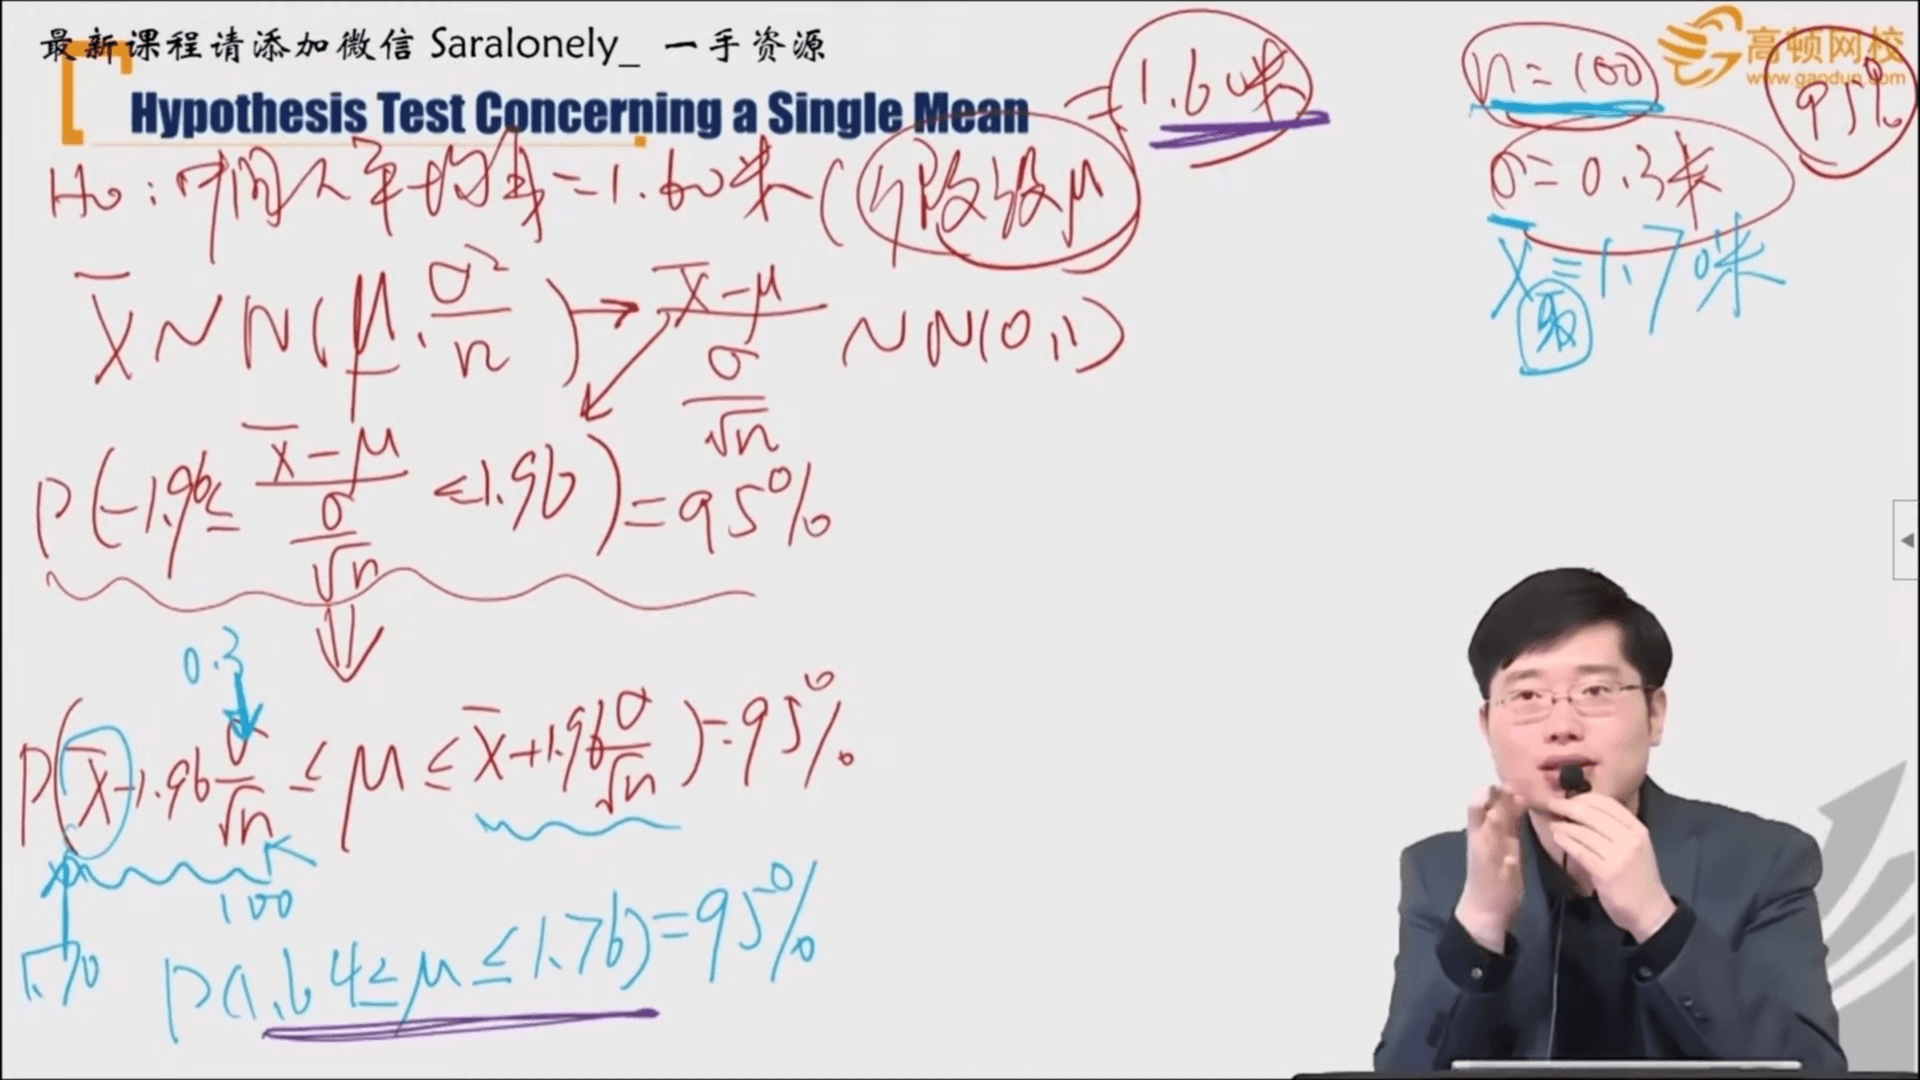 最新课程请添加微信 Saralonely_ 一手资源
高顿网校
www.gaodun.com
Hypothesis Test Concerning a Single Mean
= 1.60米
n = 100
95%
σ = 0.3米
X̄ = 1.7米
H₀: 中国人平均身 = 1.60米 (假设 μ
X̄ ~ N(μ, σ²/n) → (X̄-μ)/(σ/√n) ~ N(0,1)
P(-1.96 ≤ (X̄-μ)/(σ/√n) ≤ 1.96) = 95%
0.3
P(X̄-1.96 σ/√n ≤ μ ≤ X̄+1.96 σ/√n) = 95%
100
1.70
P(1.64 ≤ μ ≤ 1.76) = 95%